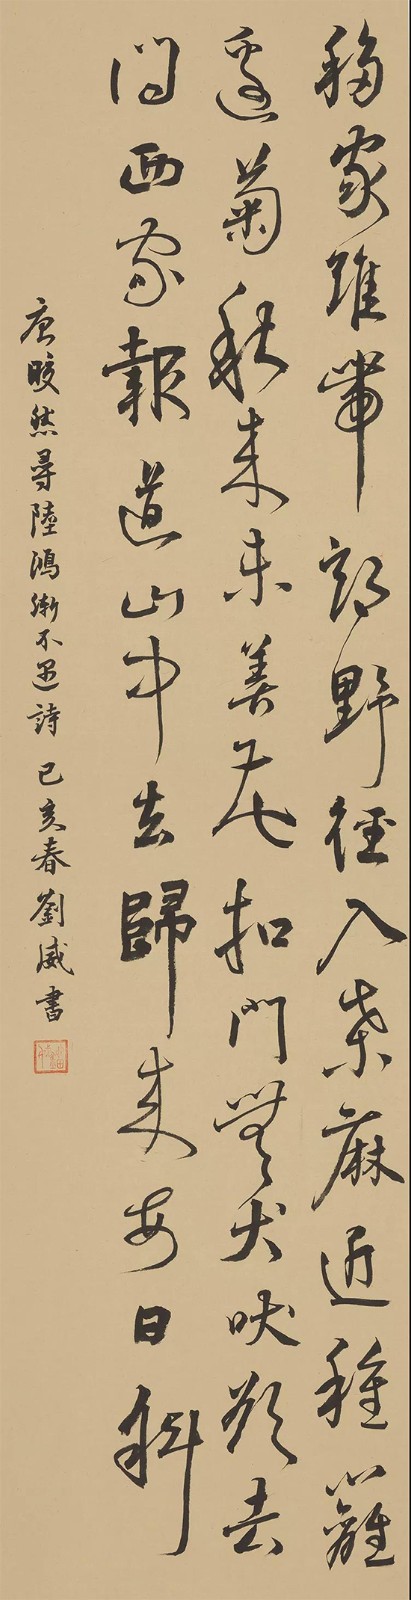 移家雖帶郭野徑入桑麻近種籬
邊菊秋來未著花扣門無犬吠欲去
問西家報道山中去歸來每日斜
唐皎然尋陸鴻漸不遇詩 己亥春劉威書